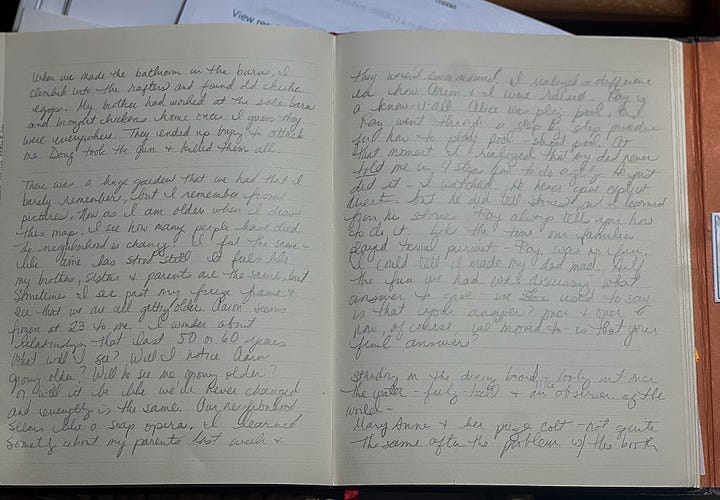 View re
When we made the bathroom in the barn, I
climbed into the rafters and found old chicken
eggs. My brother had worked at the sale barn
and brought chickens home once. I guess they
were everywhere. They ended up trying to attack
me. Doug took the gun & killed them all.
There was a huge garden that we had that I
barely remember, but I remember from
pictures. Now as I am older when I draw
this map. I see how many people have died
the neighborhood is changing. I feel the same -
like time has stood still. It feels like
my brothers, sisters & parents are the same, but
sometimes I see past my freeze frame &
see that we are all getting older. Aaron seems
frozen at 23 to me. I wonder about
relationships that last 50 or 60 years
What will I see? Will I notice Aaron
growing older? Will he see me growing older?
or will it be like we've never changed
and everything is the same. Our neighborhood
seems like a soap opera. I learned
something about my parents last week &
they weren't even around. I realized a difference
in how Aaron & I were raised. Ray is
a know-it-all. Alice was playing pool, and
Ray went through a step by step procedure
for how to play pool - shoot pool. At
that moment I realized that my dad never
told me in 4 steps how to do anything. He just
did it - I watched. He never gave explicit
directions but he did tell stories, and I learned
from his stories. Ray always tells you how
to do it. Like the time our families
played trivial pursuit - Ray was no fun.
I could tell it made my dad mad. Half
the fun we had was discussing what
answer to give - we used to say
is that your answer? over & over
now, of course we moved to - is that your
final answer?
standing on the diving board - looking out over
the water - feeling & an observer of the
world -
Mary Anne & her prize colt - not quite
the same after the problem w/ the birth